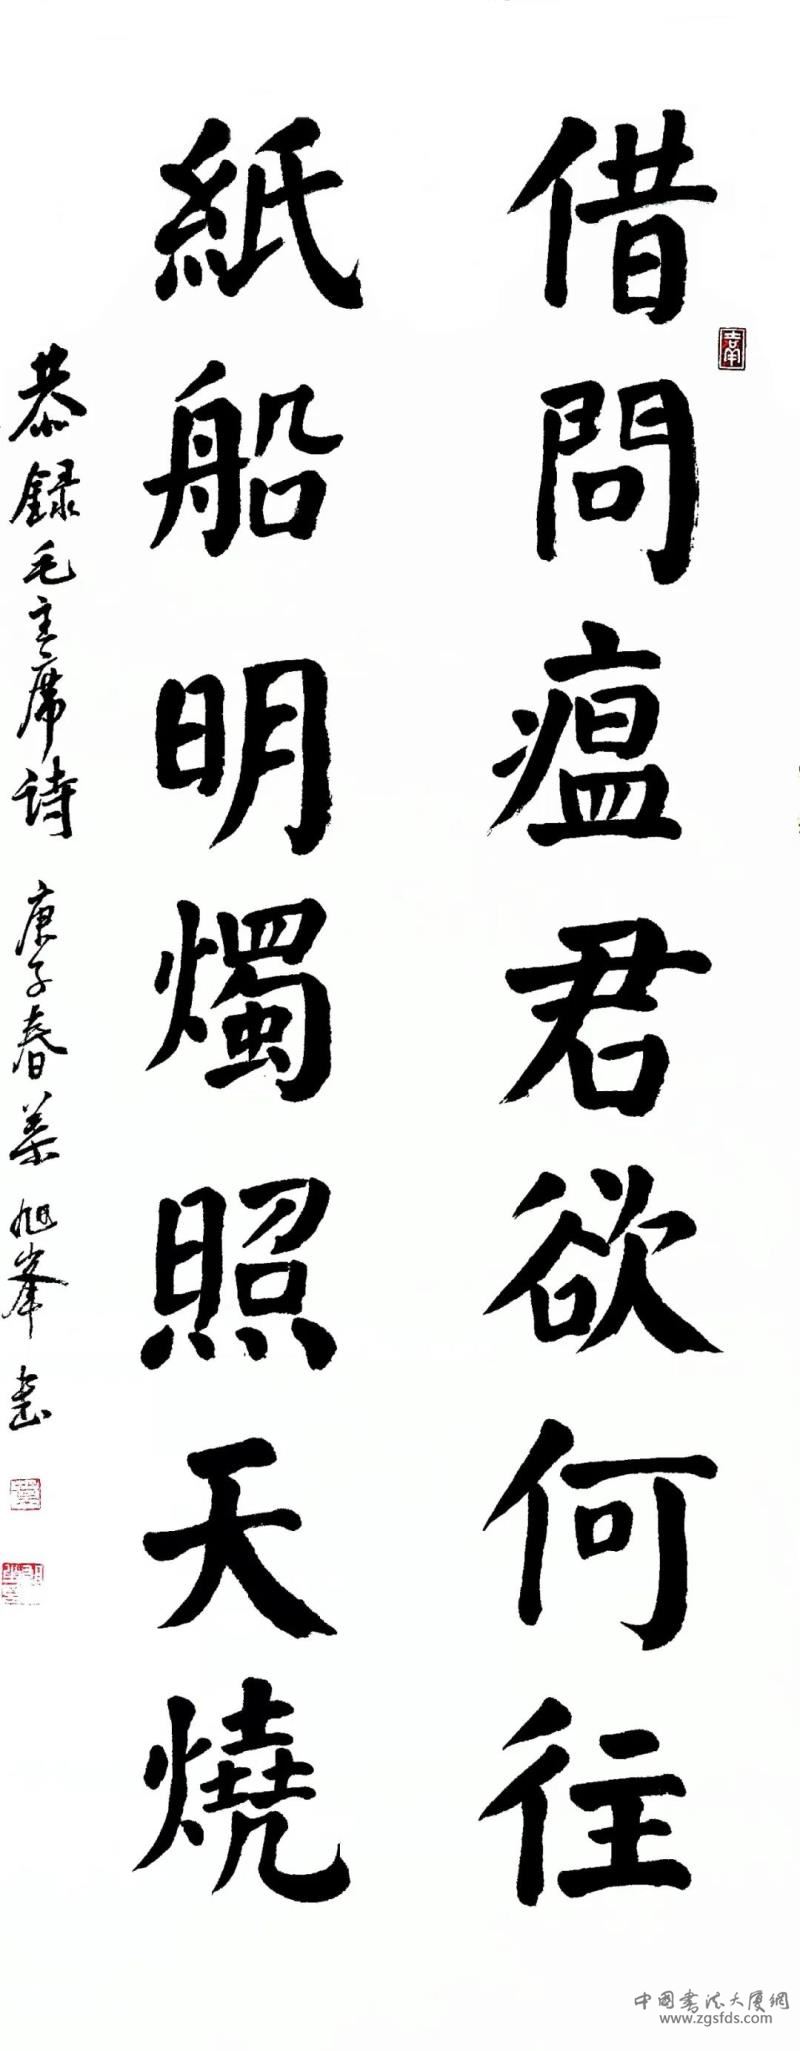 借問瘟君欲何往
紙船明燭照天燒
恭錄毛主席诗 庚子春 蔡旭峯書
中國書法大厦網
www.zgsfds.com